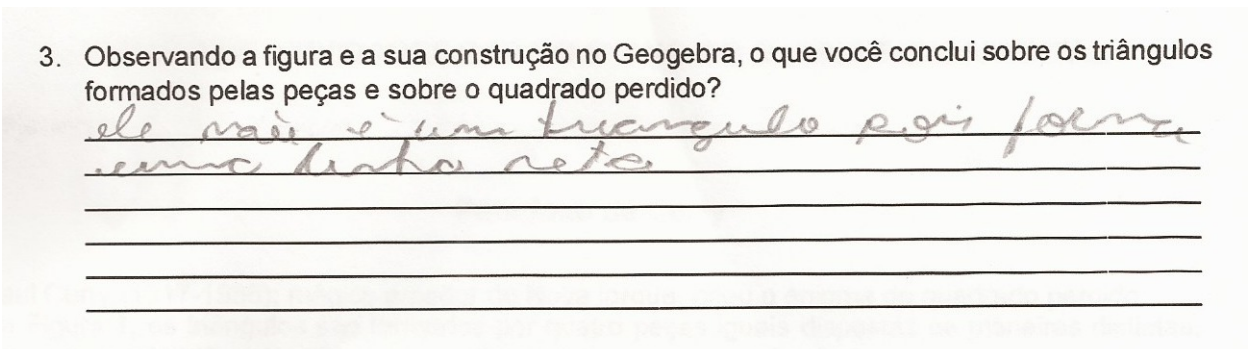 3. Observando a figura e a sua construção no Geogebra, o que você conclui sobre os triângulos
formados pelas peças e sobre o quadrado perdido?
ele não é um triangulo pois forma
uma linha reta